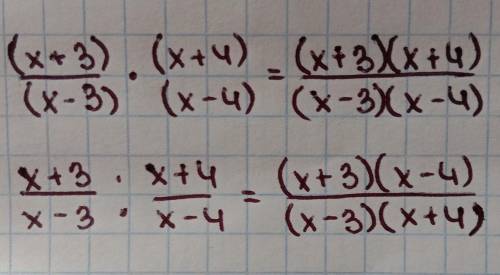 (x+3)/(x-3) · (x+4)/(x-4) = (x+3)(x+4)/(x-3)(x-4)
x+3/x-3 : x+4/x-4 = (x+3)(x-4)/(x-3)(x+4)